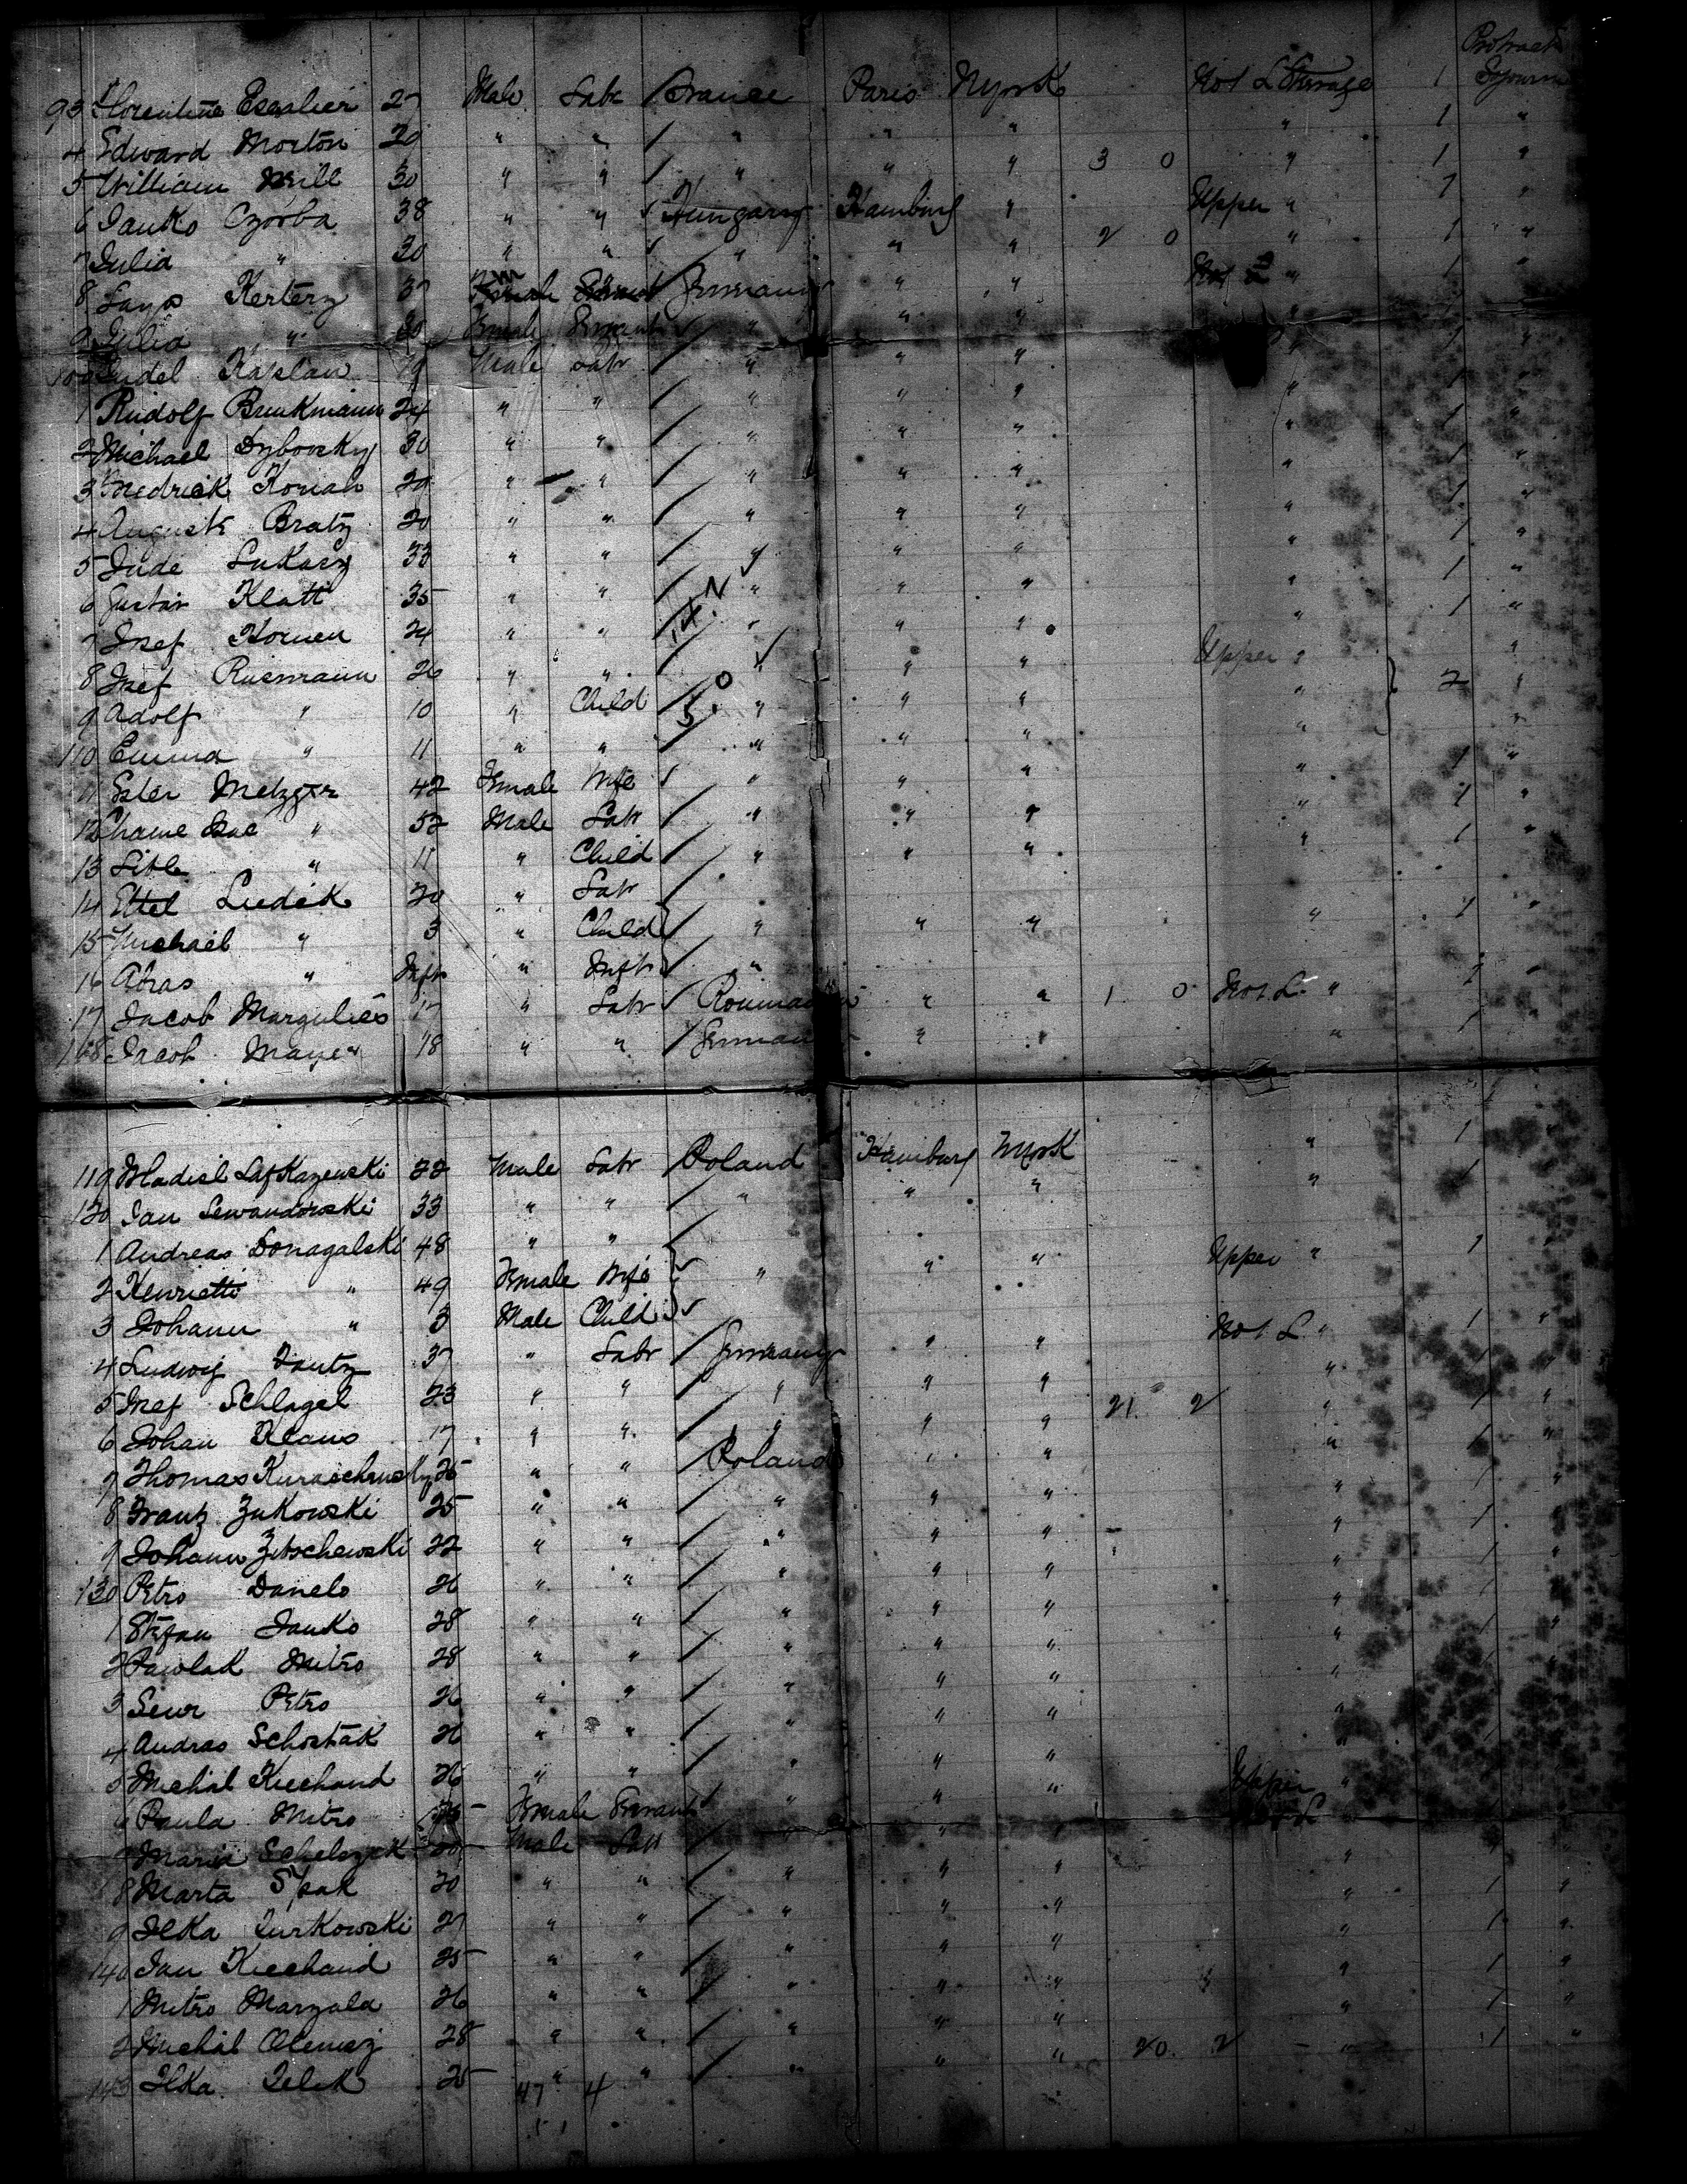 Protract
93 Florentine Escalier 27 Male Labr / France Paris NYork No 1 L Steerage 1 Sojourn
4 Edward Morton 20 " " / " " " " 1 "
5 William Mill 30 " " / " " " 3 0 " 1 "
6 Janko Czorba 38 " " / Hungary Hamburg " Upper " 1 "
7 Julia " 30 " " / " " " 2 0 " 1 "
8 Kerterz 37 Germany " " " 1 "
9 Julia " 30 Female Servant / " " " "
100 Kaplan 19 Male Labr / " " " " 1 "
1 Rudolf Brukmann 24 " " / " " " " 1 "
2 Michael Dybovsky 30 " " / " " " " 1 "
3 Fredrick Koriah 20 " " / " " " " 1 "
4 August Bratz 20 " " / " " " " 1 "
5 Jude 33 " " / " " " " 1 "
6 Gustav Klatt 35 " " / " " " " 1 "
7 Josef Kornen 24 " " / " " " " 1 "
8 Josef Rusmann 26 " " / " " " Upper " "
9 Adolf " 10 " Child / " " " " 2 "
110 Emma " 11 " " / " " " " "
11 Ester Metzger 42 Female Wife / " " " " 1 "
12 Chame " 52 Male Labr / " " " " 1 "
13 " 11 " Child / " " " " 1 "
14 Ettel Ludek 20 " Labr /
15 Michael " 3 " Child / " " " " 1 "
16 Abras " Inft " Inft / "
17 Jacob Margulies 17 " Labr / Roumania " " 1 0 No 1 L "
118 Jacob Mayer 18 " " / German " " " 1
119 Wladisl 22 Male Labr / Poland Hamburg NYork " 1
120 Jan Lewandowski 33 " " / " " " " 1
1 Andreas Donagalski 48 " " /
2 Henriette " 49 Female Wife " " " Upper " 1 "
3 Johann " 3 Male Child
4 Ludwig 37 " Labr / Germany " " No 1 L " 1 "
5 Josef Schlagel 23 " " / " " " " 1 "
6 Johan Klaus 17 " " / " " " 21 2 " 1 "
7 Thomas 25 " " / Poland " " " 1
8 Franz Zukowski 25 " " / " " " " 1 "
9 Johann Zitschewski 22 " " / " " " " 1 "
130 Petro Danelo 26 " " / " " " " 1 "
1 Stefan Janko 28 " " / " " " "
2 Pawlak Mitro 28 " " / " " " " 1 "
3 Petro 26 " " / " " " "
4 Andras Schostak 26 " " / " " " "
5 Michal Kuchand 26 " " / " " " "
6 Paula Mitro Female Servant / " " " Upper "
7 Maria Male Labr / " "
8 Marta Spak 20 " " / " " " "
9 Ilka Turkowski 27 " " / " " " " 1 "
140 Jan Kuchand 25 " " / " " " " 1 "
1 Mitro Marzala 26 " " / " " " " 1 "
2 Michal 28 " " / " " " " 1 "
143 Ilka Telek 25 " " / " " " 20 2 " 1 "
47 4